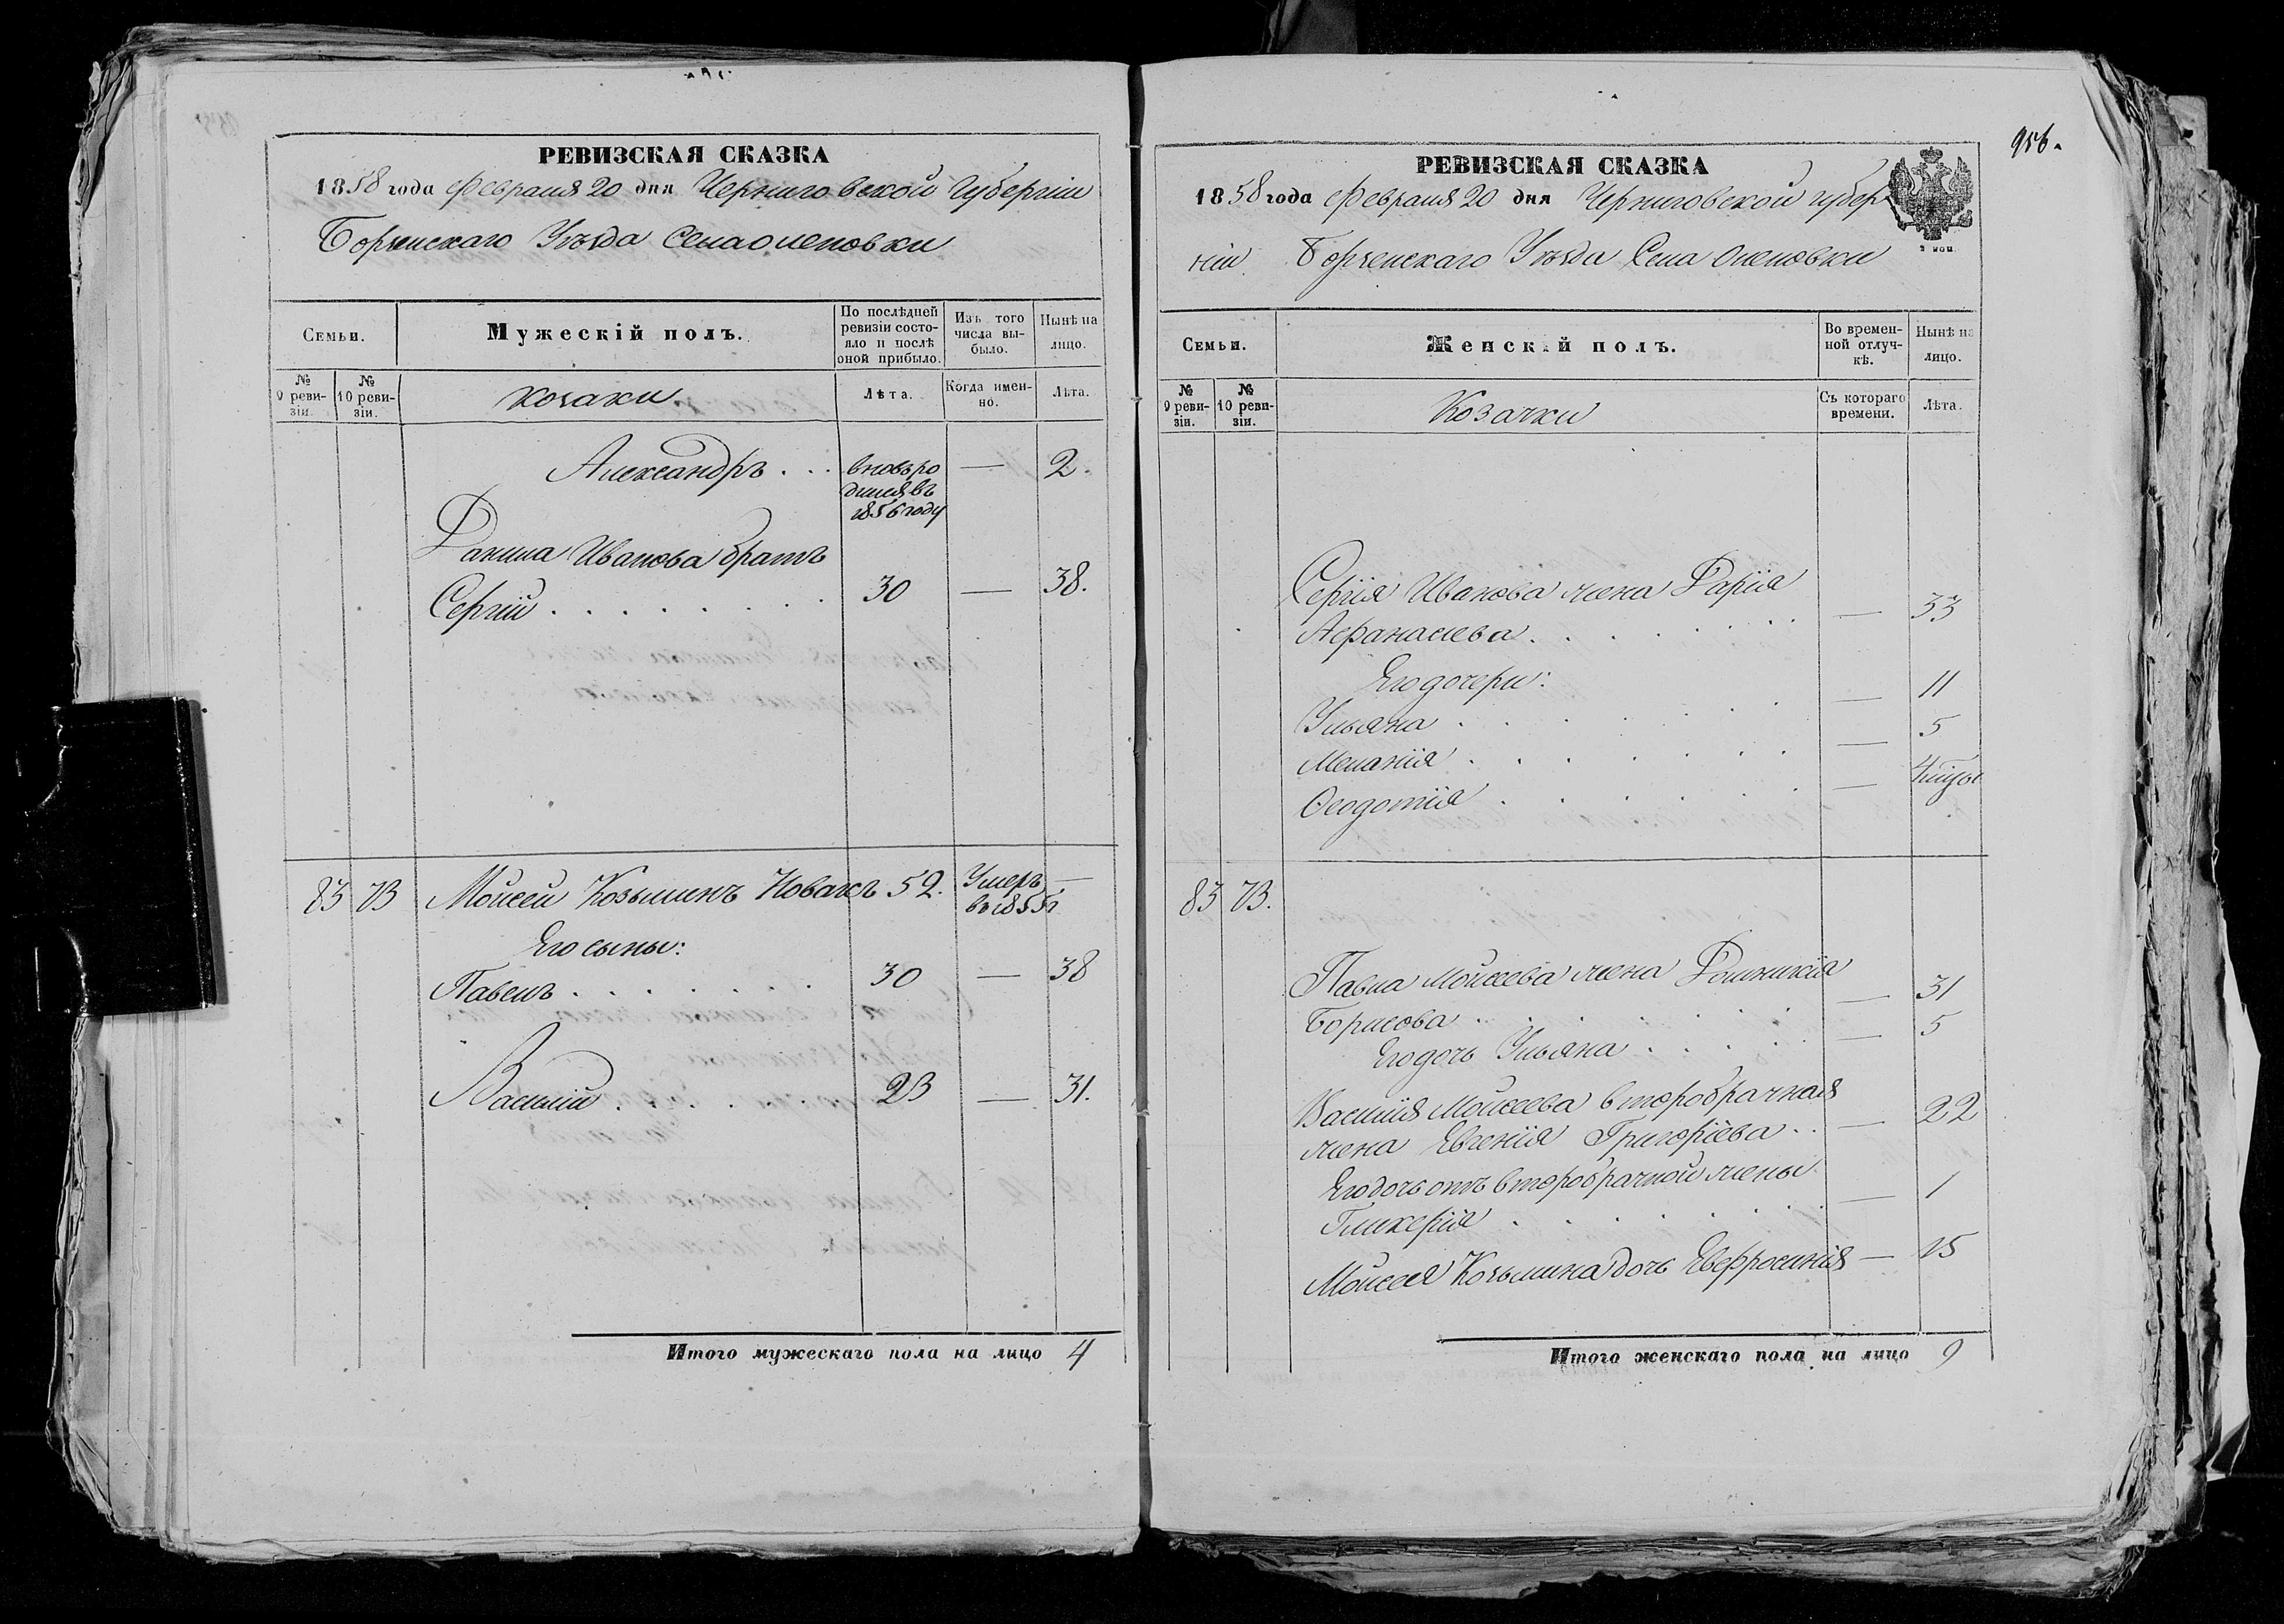 РЕВИЗСКАЯ СКАЗКА
1858 года Февраля 20 дня Черниговской Губерніи
Борзенскаго Уѣзда Села Оленовки
Семьи.
Мужескій полъ.
По послѣдней ревизіи состояло и послѣ оной прибыло.
Изъ того числа выбыло.
Нынѣ на лицо.
№ 9 ревизіи.
№ 10 ревизіи.
Козаки
Лѣта.
Когда именно.
Лѣта.
Александръ . . . вновь ро — 2.
дился въ
1856 году
Данила Иванова братъ
Сергій . . . . . . . . 30 — 38.
83 73 Мойсей Козьминъ Новакъ 52. Умеръ —
въ 1855 г
Его сыны:
Павелъ . . . . . . . 30 — 38
Василій . . . . 23 — 31.
Итого мужескаго пола на лицо 4
956.
РЕВИЗСКАЯ СКАЗКА
1858 года Февраля 20 дня Черниговской губер
ніи Борзенскаго Уѣзда Села Оленовки
Семьи.
Женскій полъ.
Во временной отлучкѣ.
Нынѣ на лицо.
№ 9 ревизіи.
№ 10 ревизіи.
Козачки
Съ котораго времени.
Лѣта.
Сергія Иванова жена Дарія
Афанасиева . . . . . . . — 33
Его дочери:
Ульяна . . . . . . . — 11
Меланія . . . . . . . — 5
Ѳеодотія . . . . . . . — 4 мѣсцы
83 73.
Павла Мойсеева жена Домникія
Борисова . . . . . . . — 31
Его дочь Ульяна . . . . . — 5
Василія Мойсеева второбрачная
жена Евгенія Григоріева . . — 22
Его дочь отъ второбрачной жены
Гликерія . . . . . . . — 1
Мойсея Козьмина дочь Евфросинія — 15
Итого женскаго пола на лицо 9